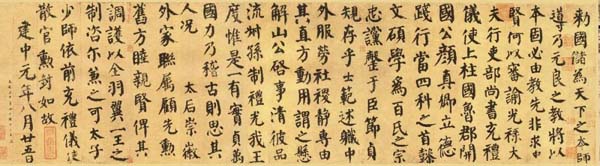 敕國儲為天下之本師
導乃元良之教將以
本固必由教先非求忠
賢何以審諭光祿大
夫行吏部尚書充禮
儀使上柱國魯郡開
國公顏真卿立德
踐行當四科之首懿
文碩學為百氏之宗
忠讜罄于臣節貞
規存乎士範述職中
外服勞社稷靜專由
其直方動用謂之懸
解山公啓事清彼品
流叔孫制禮光我王
度惟是一有實貞萬
國力乃稽古則思其
人況 太后崇徽
外家聯屬顧先勳
舊方睦親賢俾其
調護以全羽翼一王之
制咨爾兼之可太子
少師依前充禮儀使
散官勳封如故
建中元年八月廿五日